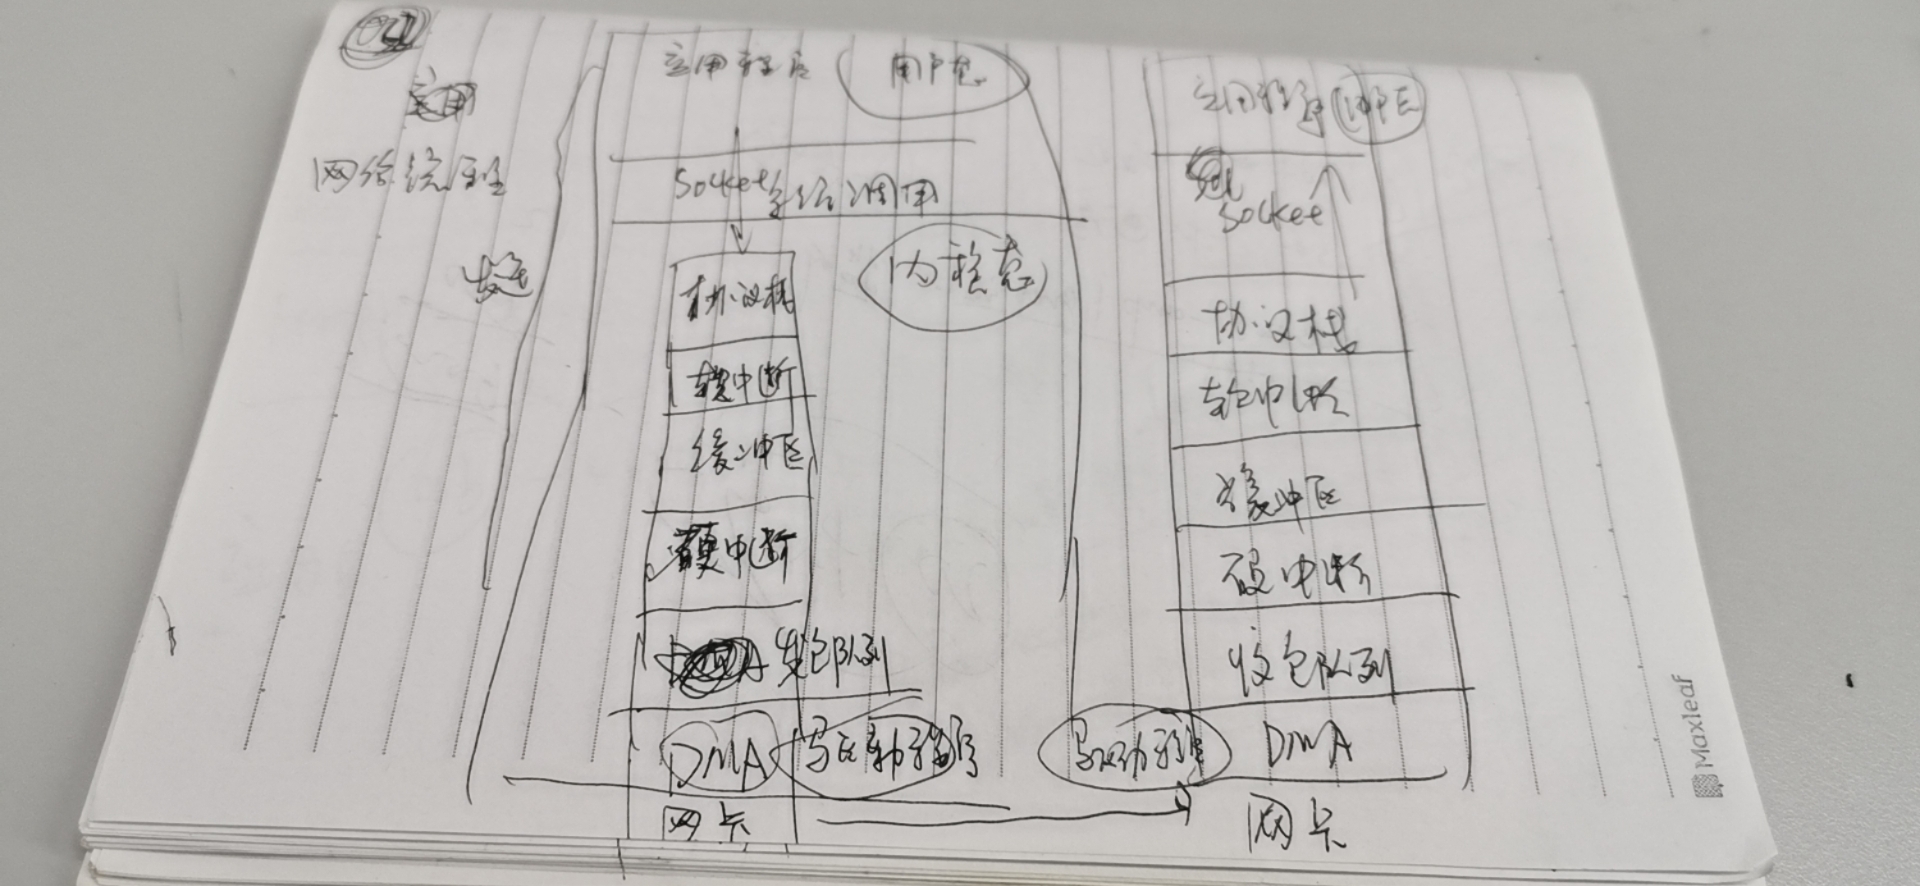 网络编程
发送
应用程序 用户态
Socket 系统调用
内核态
协议栈
软中断
缓冲区
硬中断
发包队列
DMA 驱动程序
网卡
应用程序
Socket
协议栈
软中断
缓冲区
硬中断
收包队列
驱动程序 DMA
网卡
Maxleaf